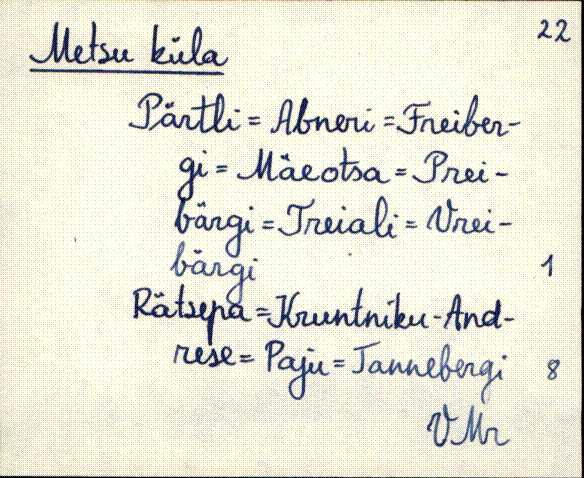 22
Metsu küla
Pärtli = Abneri = Freiber-
gi = Mäeotsa = Prei-
bärgi = Treiali = Vrei-
bärgi 1
Rätsepa = Kruntniku-And-
rese = Paju = Tannebergi 8
VMr